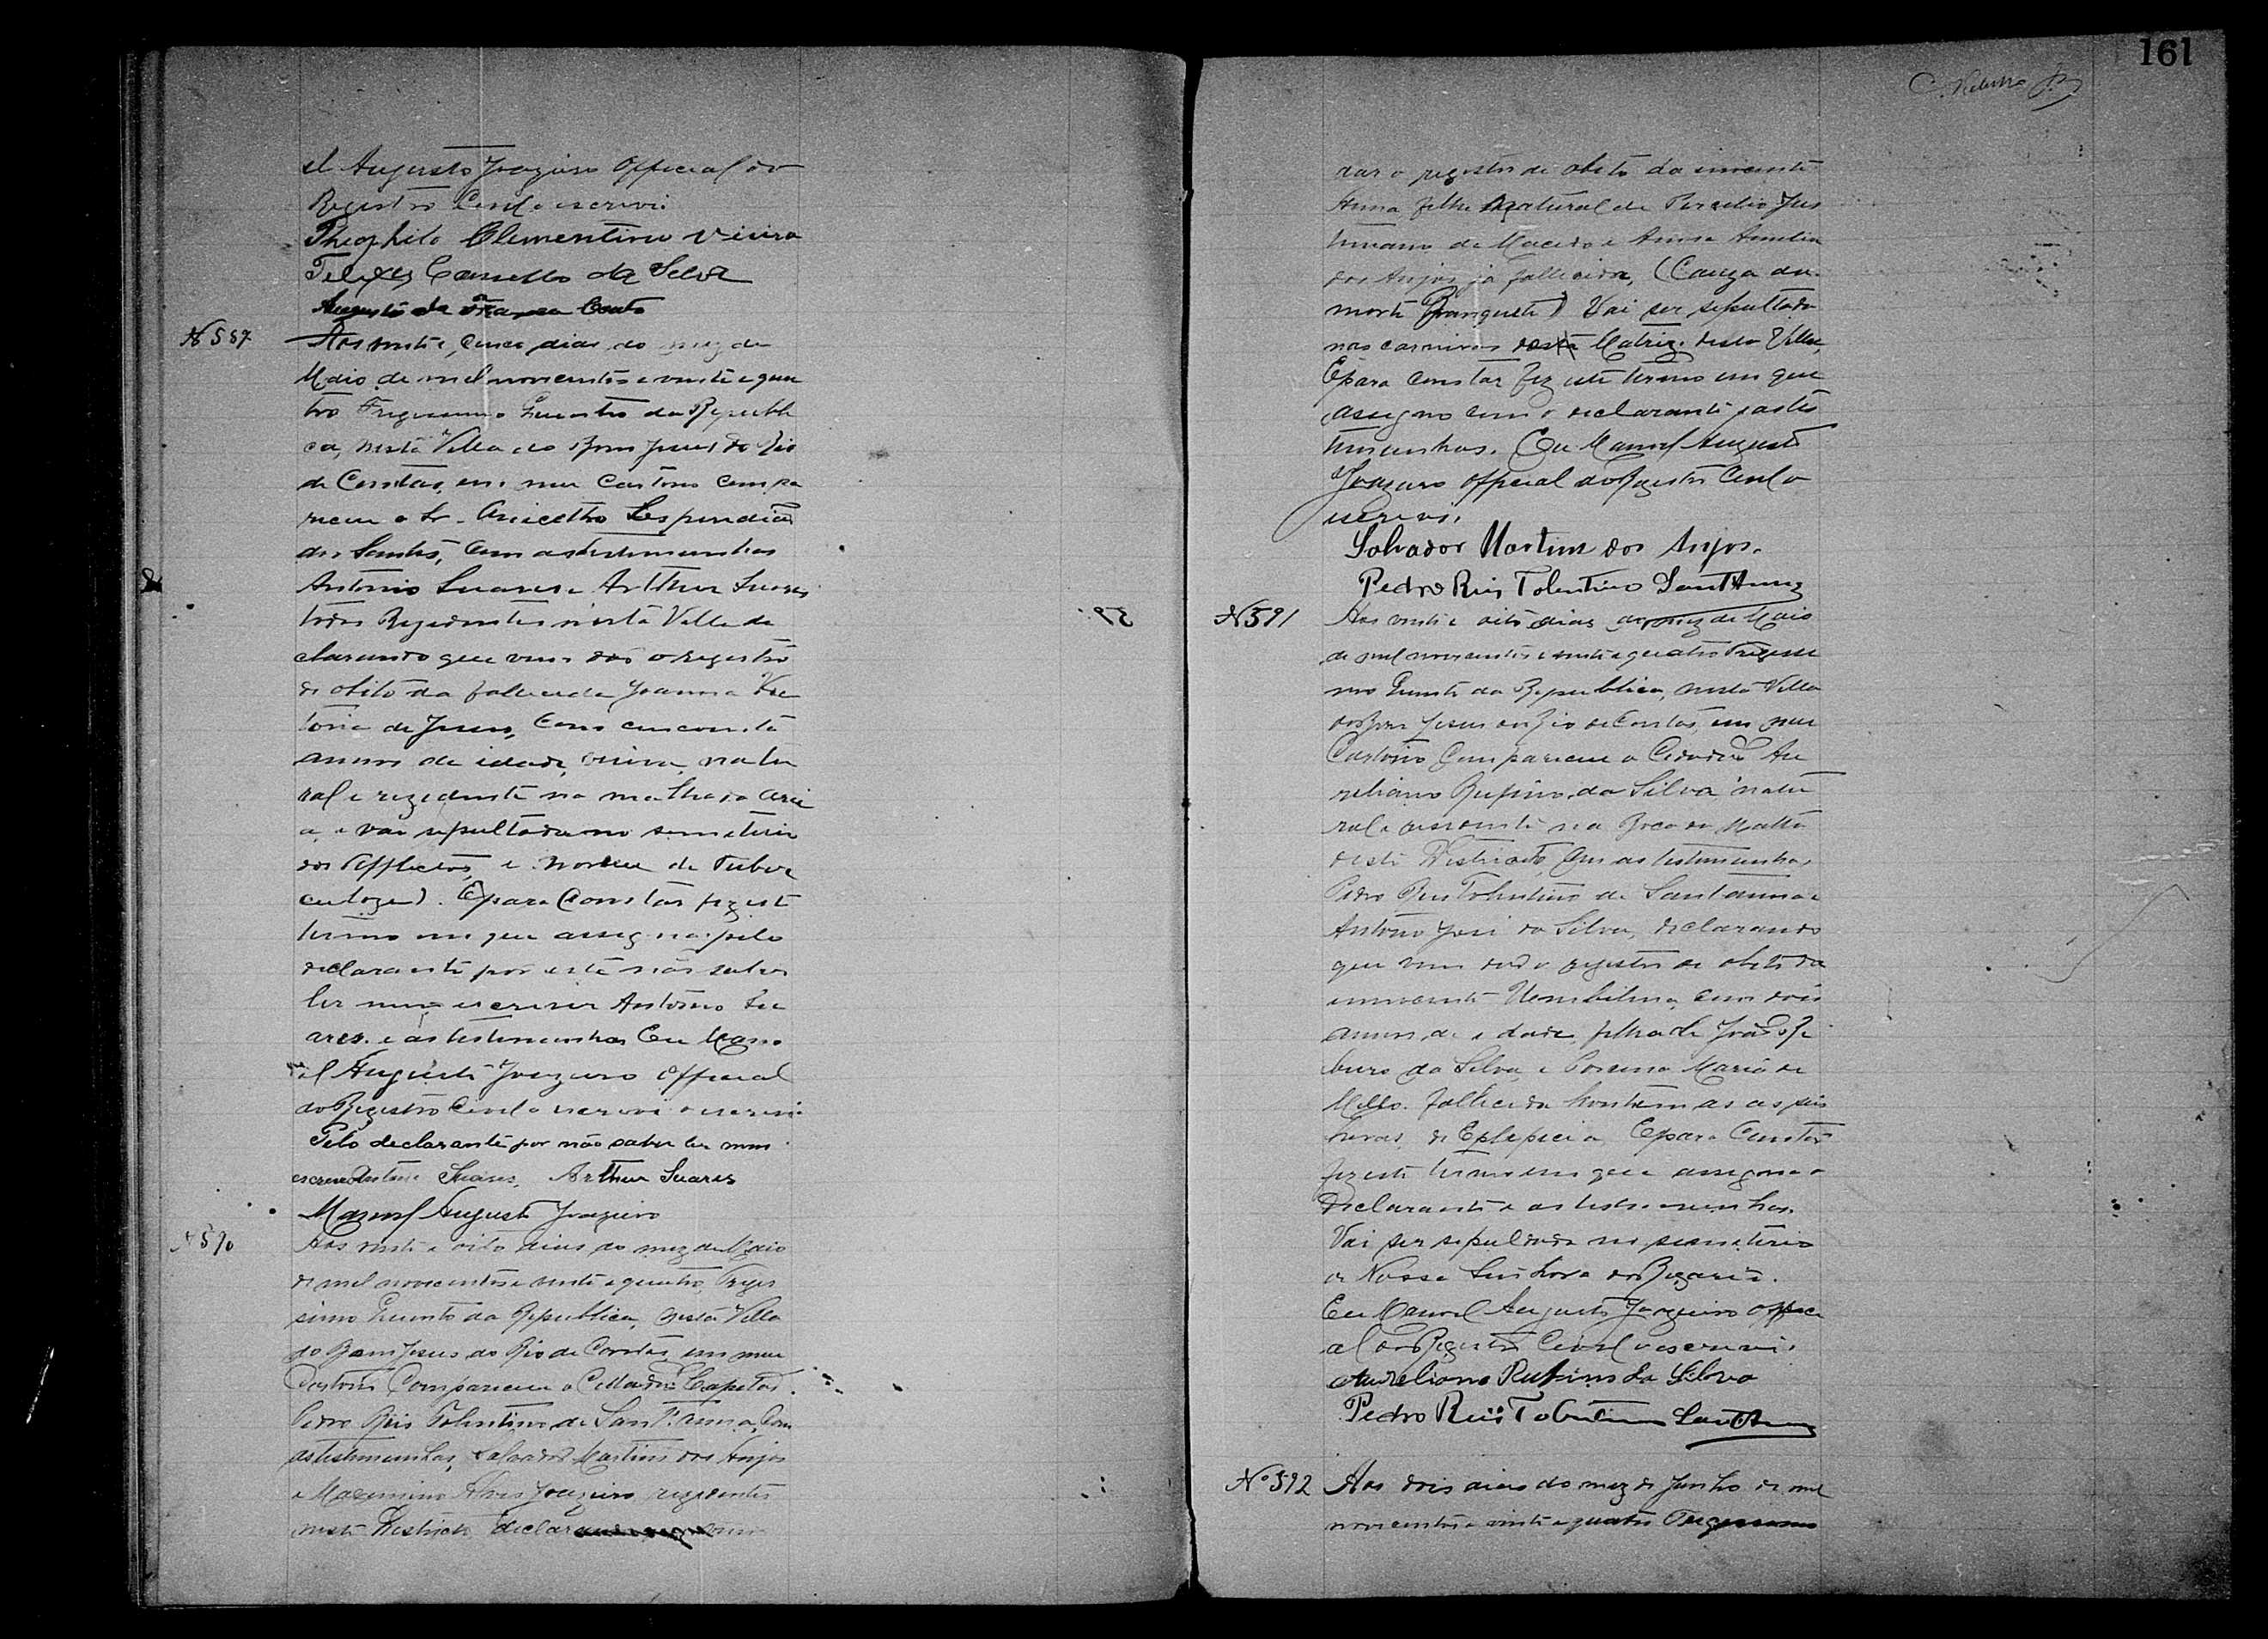 el Augusto Joazeiro Official do
Registro Civil o escrevi.
Theophilo Clementino Vieira
da Silva
Augusto da França Couto
N 589
Aos vinte e cinco dias do mez de
Maio de mil novecentos e vinte e qua
tro Trigessimo Quinto da Republi
ca, nesta Villa do Bom Jesus do Rio
de Contas, em meu Cartorio compa
receu o Sr. Anicettro Lespendião
dos Santos, com as testemunhas
Antonio Suares e Arthur Suares
todos Rezedentes nesta Villa de
clarando que vem dar o registro
de obito da fallecida Joanna Vic
toria de Jesus, com cincoenta
annos de idade, viuva, natu
ral e rezedente na malhada Arei
a, e vai sepultada no semeterio
dos Afflictos, e morreu de Tuber
culoze). E para Constar fiz este
termo em que assigna pelo
declarante por este não saber
ler nem escrever Antonio Su
ares. e as testemunhas Eu Mano
el Augusto Joazeiro Official
do Registro Civil o escrevi o escrevi.
Pelo declarante por não saber ler nem
escrever Antonio Suares. Arthur Suares
Manoel Augusto Joazeiro
N 590
Aos vinte e oito dias do mez de Maio
de mil novecentos e vinte e quatro, Triges
simo Quinto da Republica, nesta Villa
do Bom Jesus do Rio de Contas, em meu
Cartorio Compareceu o Cidadão Capitão
Pedro Reis Tolentino de Sant'Anna, Com
as testemunhas, Salvador Martins dos Anjos
e Maximino Alves Joazeiro rezedentes
neste Districto, declarando que vem
161
dar o registro de obito da inocente
Anna filha Natural de Jus
tiniano de Macedo e Amelia
dos Anjos já fallecida, (Cauza da
morte Vai ser sepultada
nas carneiras desta Matriz desta Villa,
E para constar fiz este termo em que
assigno com o declarante e as tes
timunhas. Eu Manoel Augusto
Joazeiro official do Registro Civil o
escrevi.
Salvador Martins dos Anjos.
Pedro Reis Tolentino SantAnna
N 591
Aos vinte e oito dias do mez de Maio
de mil novecentos e vinte e quatro Trigessi
mo Quinto da Republica, nesta Villa
do Bom Jesus do Rio de Contas, em meu
Cartorio Compareceu o Cidadão Au
reliano Rufino da Silva, natu
ral e rezedente na Boca da Matta
deste Districto, com as testemunhas,
Pedro Reis Tolentino de Santanna e
Antonio José da Silva, declarando
que vem dar o registro de obito da
innocente com dois
annos de idade, filha de João Ri
beiro da Silva, e Maria de
Mello. fallecida hontem as as seis
horas, de E para Constar
fiz este termo em que assigna o
Declarante e as testemunhas.
Vai ser sepuldada no semeterio
de Nossa Senhora do Rozario.
Eu Manoel Augusto Joazeiro offici
al do Registro Civil o escrevi.
Aureliano Rufino da Silva
Pedro Reis Tolentino SantAnna
No 592
Aos dois dias do mez de Junho de mil
novecentos e vinte e quatro Trigessimo